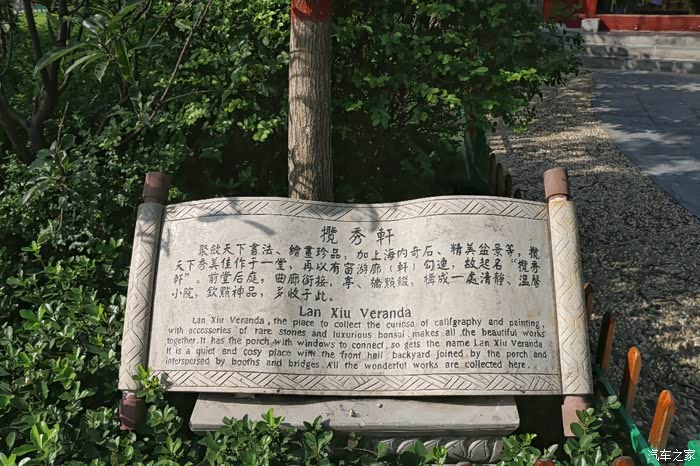 攬秀軒
聚斂天下書法、繪畫珍品，加上海內奇石、精美盆景等，攬
天下秀美佳作于一堂，再以有窗游廊（軒）勾連，故起名“攬秀
軒”。前堂后庭，曲廊銜接，亭、橋點綴，構成一處清靜、溫馨
小院，欽點神品，多收于此。
Lan Xiu Veranda
Lan Xiu Veranda, the place to collect the curiosa of califgraphy and painting,
with accessories of rare stones and luxurious bonsai, makes all the beautiful works
together. It has the porch with windows to connect, so gets the name Lan Xiu Veranda.
It is a quiet and cosy place with the front hall, backyard joined by the porch and
interspersed by booths and bridges. All the wonderful works are collected here.
汽车之家